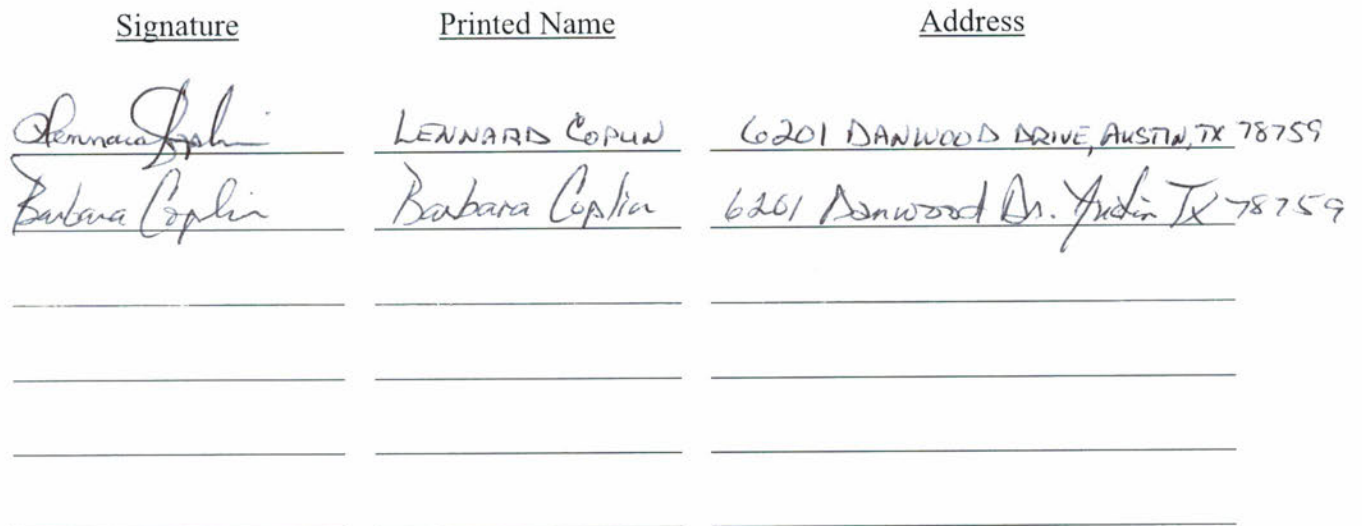 Signature Printed Name Address
Lennard Coplin LENNARD COPLIN 6201 DANWOOD DRIVE, AUSTIN, TX 78759
Barbara Coplin Barbara Coplin 6201 Danwood Dr. Austin TX 78759